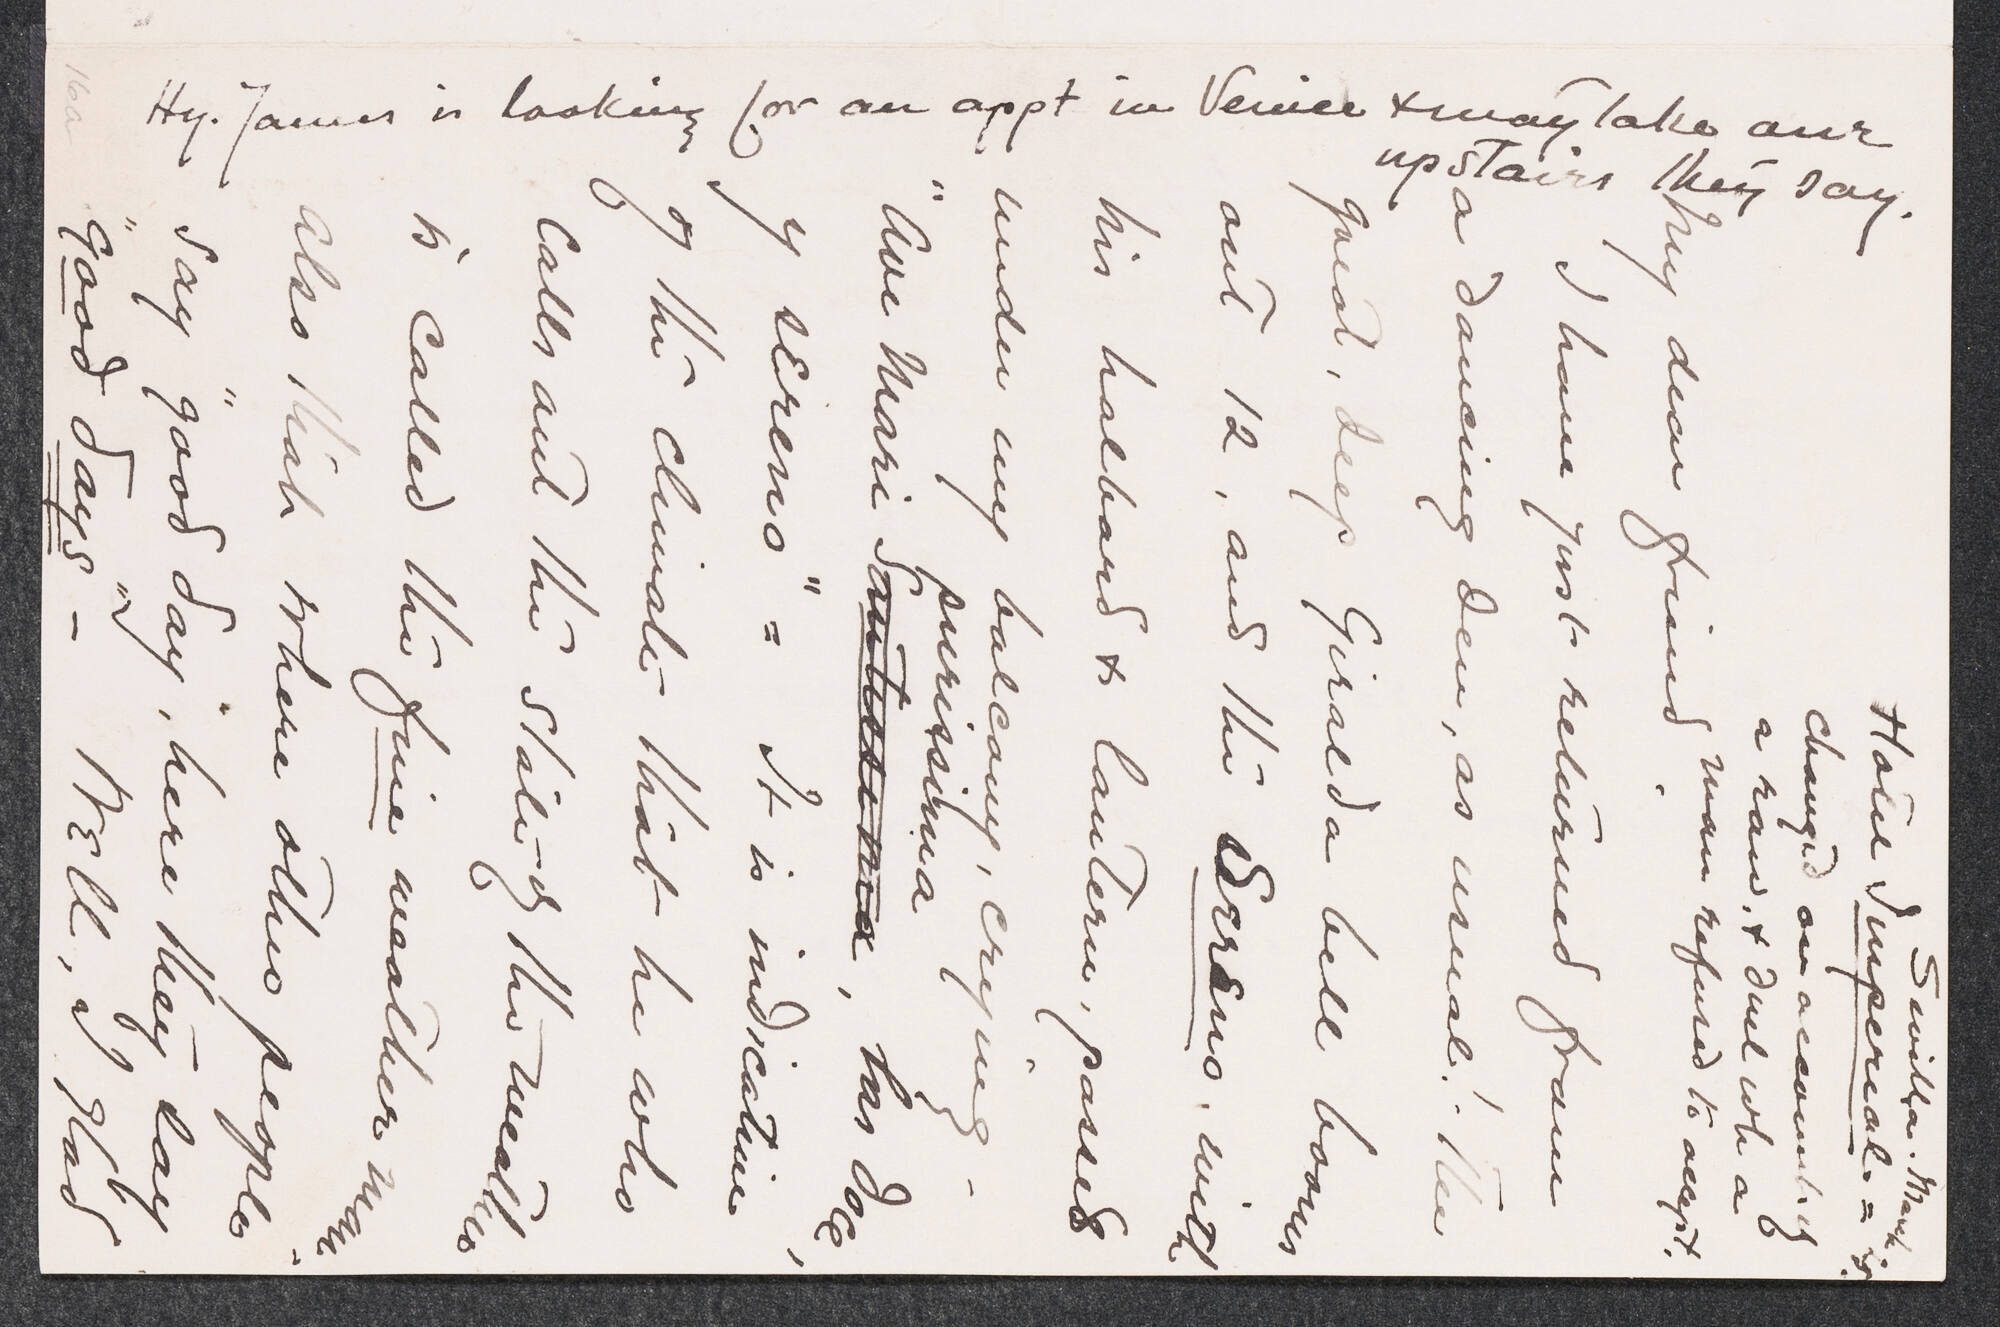 Hy. James is looking for an appt in Venice & may take our
upstairs they say.
Sevilla. March 19.
Hotel Imperial =
changed on account of
a row, & duel wh a
man refused to accept.
My dear friend.
I have just returned from
a dancing den, as usual! The
great, deep Giralda bell booms
out 12, and the Sereno, with
his halbard & lantern, passes
under my balcony, crying -
purissima
"Ave Mari Santissima, las doce,
y sereno" = It is indicative
of the climate that he who
calls out the state of the weather
is called the fine weather man
also that where other people
say "good day", here they say
"good days" - Well, I glad
160a